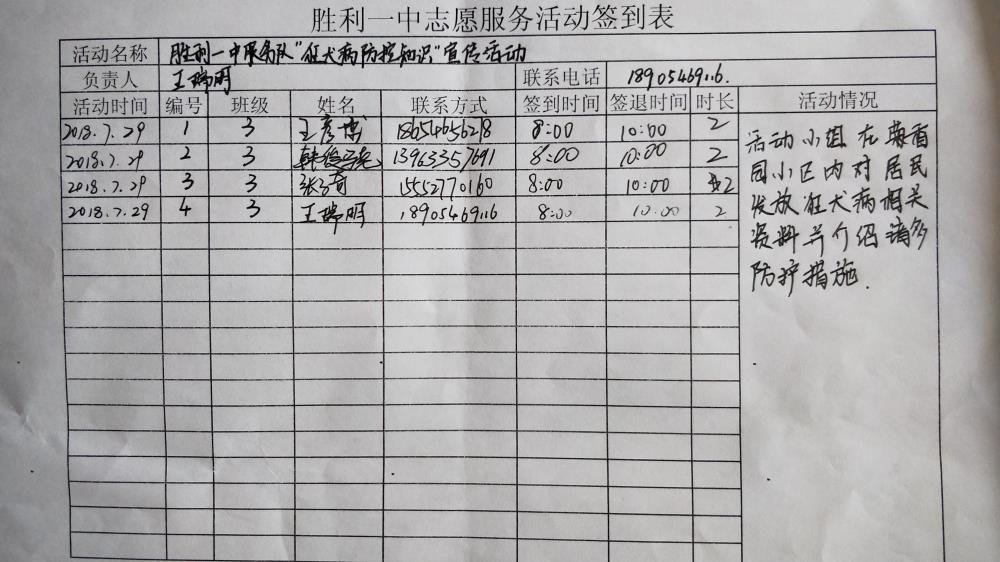 胜利一中志愿服务活动签到表
活动名称 胜利一中服务队"狂犬病防控知识"宣传活动
负责人 王瑞明 联系电话 18905469116.
活动时间 编号 班级 姓名 联系方式 签到时间 签退时间 时长 活动情况
2018.7.29 1 3 王彦博 18654656278 8:00 10:00 2
2018.7.29 2 3 韩 13963357691 8:00 10:00 2
2018.7.29 3 3 张子奇 15552770160 8:00 10:00 2
2018.7.29 4 3 王瑞明 18905469116 8:00 10:00 2
活动小组在 香
园小区内对居民
发放狂犬病相关
资料并介绍诸多
防护措施.